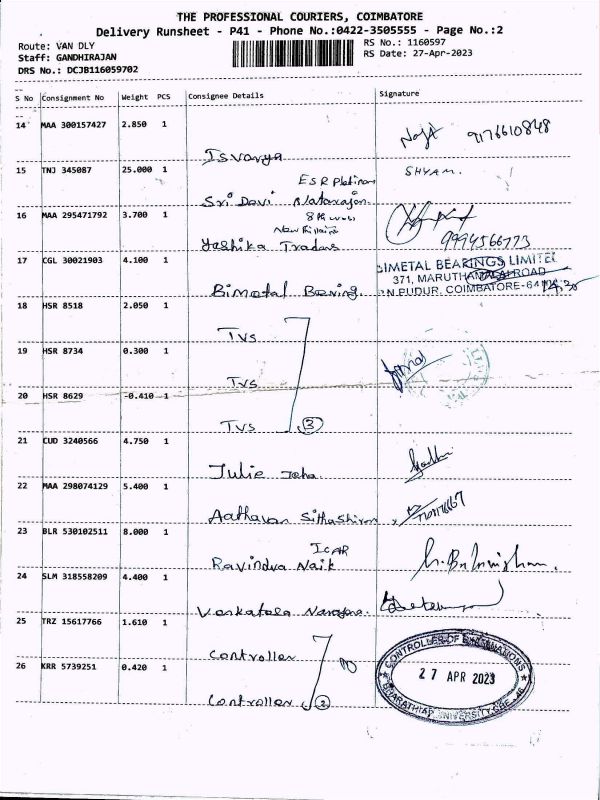 THE PROFESSIONAL COURIERS, COIMBATORE
Delivery Runsheet - P41 - Phone No.:0422-3505555 - Page No.:2
Route: VAN DLY
RS No.: 1160597
Staff: GANDHIRAJAN
RS Date: 27-Apr-2023
DRS No.: DCJB116059702
S No Consignment No Weight PCS Consignee Details Signature
14 MAA 300157427 2.850 1
Isvarya
15 TNJ 345087 25.000 1 SHYAM.
ESR Platinam
Sri Davi Natarajan
16 MAA 295471792 3.700 1
9994566773
Yashika Tradas
17 CGL 30021903 4.100 1
BIMETAL BEARINGS LIMITED
371, MARUTHAMALAI ROAD
Bimetal Baring
N.PUDUR, COIMBATORE-641
18 HSR 8518 2.050 1
Tvs
19 HSR 8734 0.300 1
Tvs
20 HSR 8629 -0.410 1
Tvs 3
21 CUD 3240566 4.750 1
Julie
22 MAA 298074129 5.400 1
Aathavan
23 BLR 530102511 8.000 1
ICAR
Ravindra Naik
24 SLM 318558209 4.400 1
25 TRZ 15617766 1.610 1
Controller
CONTROLLER OF EXAMINATIONS
27 APR 2023
BHARATHIAR UNIVERSITY, CBE - 46
26 KRR 5739251 0.420 1
Controller 2